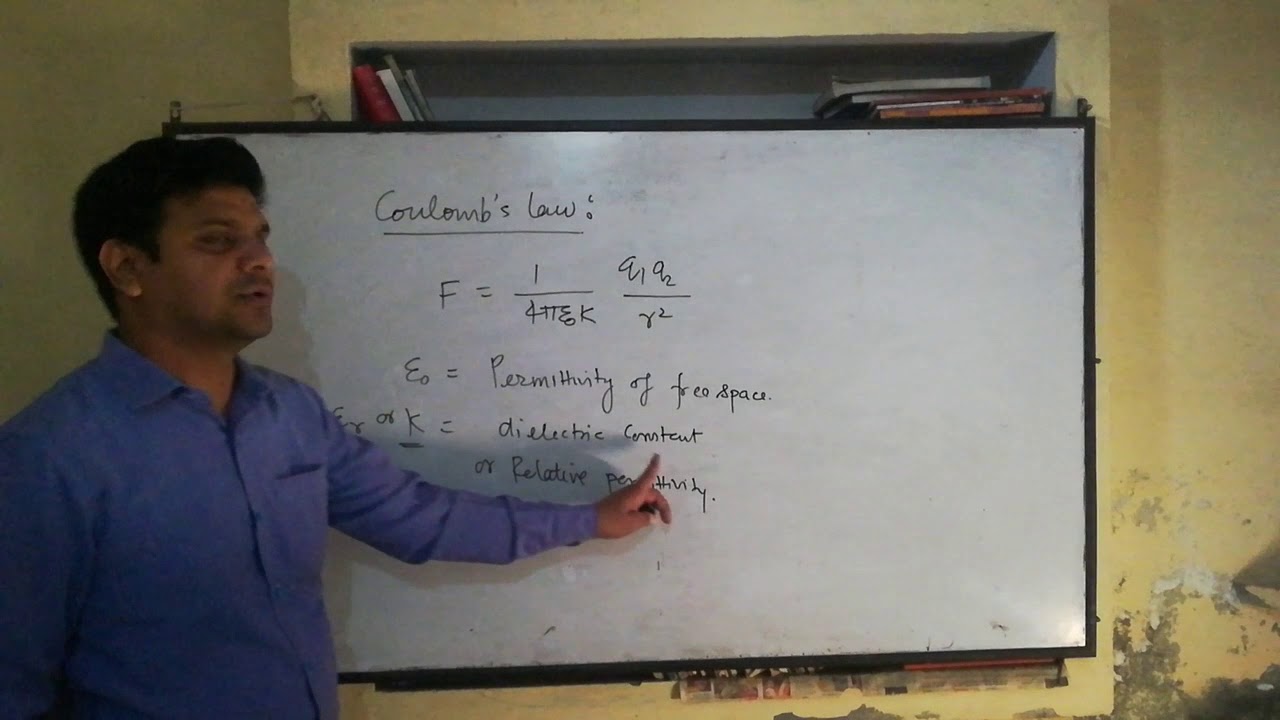 Coulomb's law:
F = 1/4πε₀K q₁q₂/r²
ε₀ = Permittivity of free space.
εr or K = dielectric Constant
or Relative permittivity.